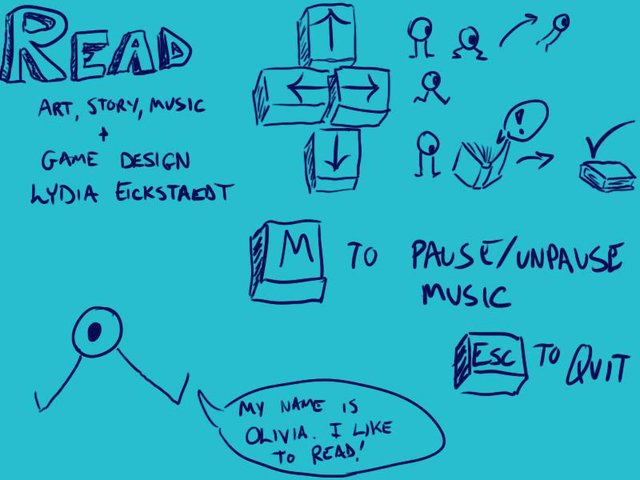 READ
ART, STORY, MUSIC
+
GAME DESIGN
LYDIA EICKSTAEDT
!
M TO PAUSE/UNPAUSE
MUSIC
ESC TO QUIT
MY NAME IS
OLIVIA. I LIKE
TO READ!